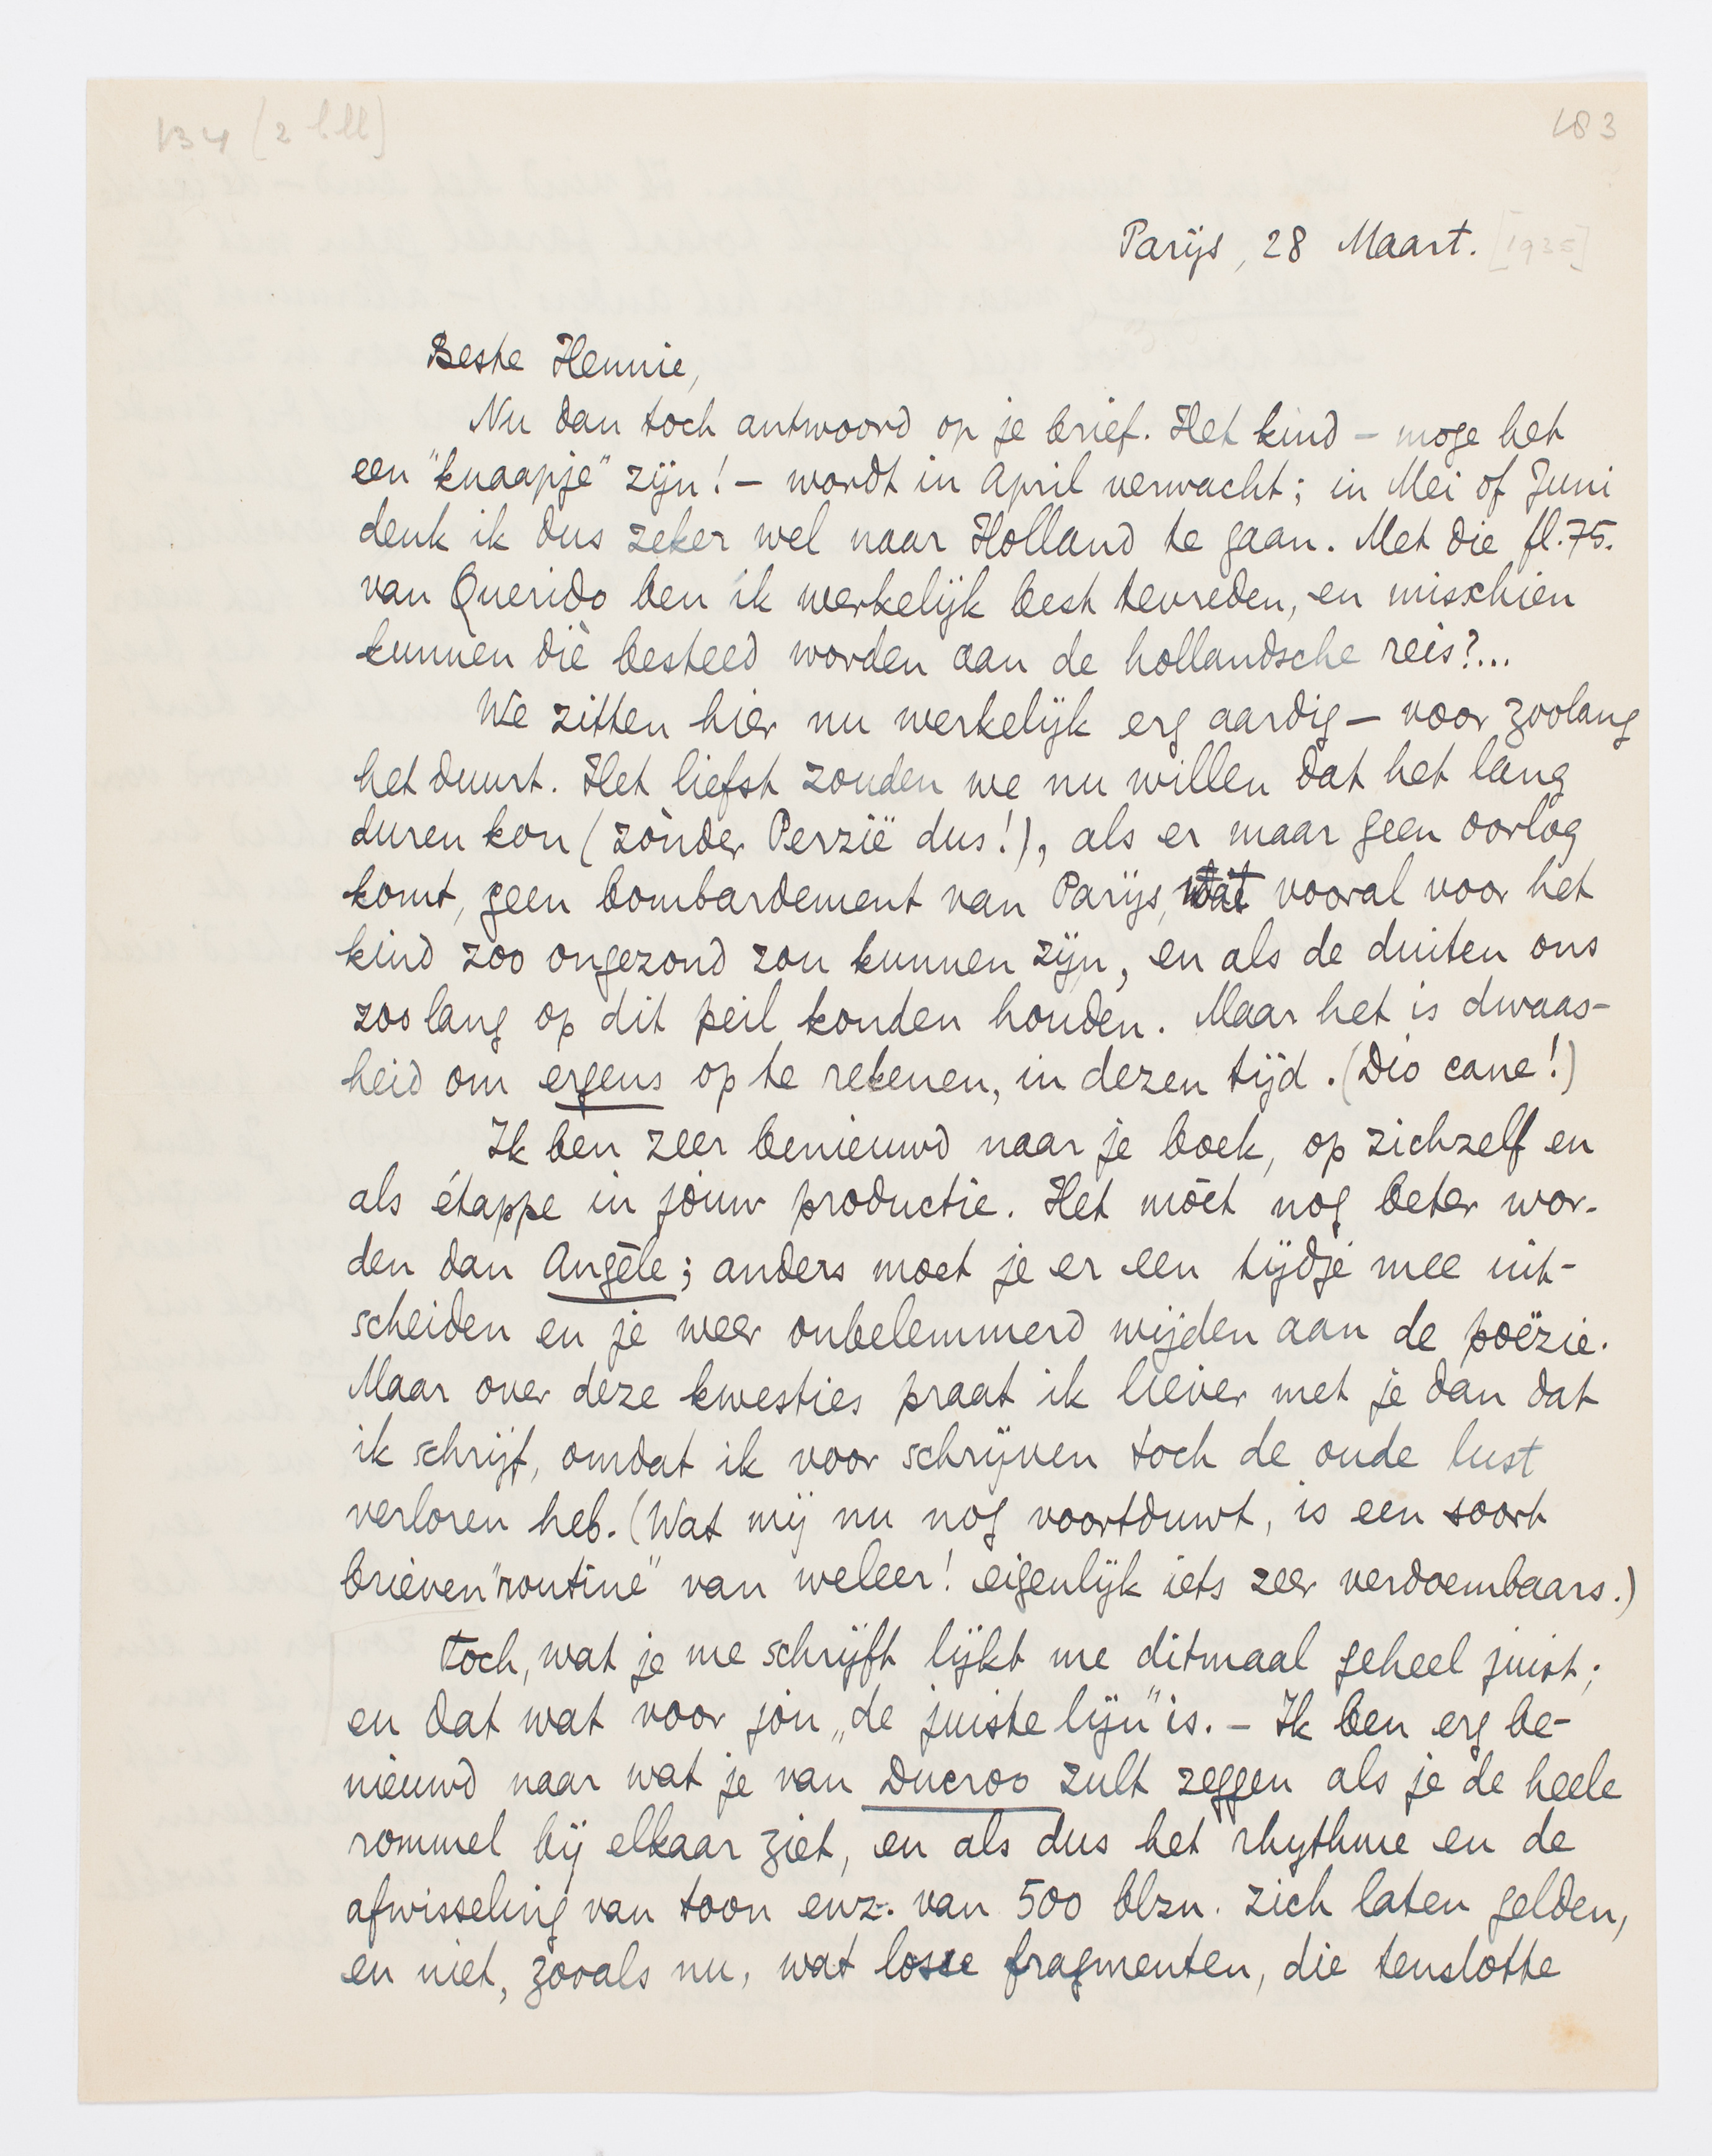 134 (2 bll)
183
Parijs, 28 Maart. [1935]
Beste Hennie,
Nu dan toch antwoord op je brief. Het kind – moge het
een "knaapje" zijn! – wordt in April verwacht; in Mei of Juni
denk ik dus zeker wel naar Holland te gaan. Met die fl. 75.
van Querido ben ik werkelijk best tevreden, en misschien
kunnen diè besteed worden aan de hollandsche reis?...
We zitten hier nu werkelijk erg aardig – voor zoolang
het duurt. Het liefst zouden we nu willen dat het lang
duren kon (zònder Perzië dus!), als er maar geen oorlog
komt, geen bombardement van Parijs, wat vooral voor het
kind zoo ongezond zou kunnen zijn, en als de duiten ons
zoolang op dit peil konden houden. Maar het is dwaas-
heid om ergens op te rekenen, in dezen tijd. (Dio cane!)
Ik ben zeer benieuwd naar je boek, op zichzelf en
als étappe in jouw productie. Het mòet nog beter wor-
den dan Angèle; anders moet je er een tijdje mee uit-
scheiden en je weer onbelemmerd wijden aan de poëzie.
Maar over deze kwesties praat ik liever met je dan dat
ik schrijf, omdat ik voor schrijven toch de oude lust
verloren heb. (Wat mij nu nog voortduwt, is een soort
brieven"routine" van weleer! eigenlijk iets zeer verdoembaars.)
Toch, wat je me schrijft lijkt me ditmaal geheel juist;
en dat wat voor jòu „de juiste lijn" is. – Ik ben erg be-
nieuwd naar wat je van Ducroo zult zeggen als je de heele
rommel bij elkaar ziet, en als dus het rhythme en de
afwisseling van toon enz. van 500 blzn. zich laten gelden,
en niet, zooals nu, wat losse fragmenten, die tenslotte